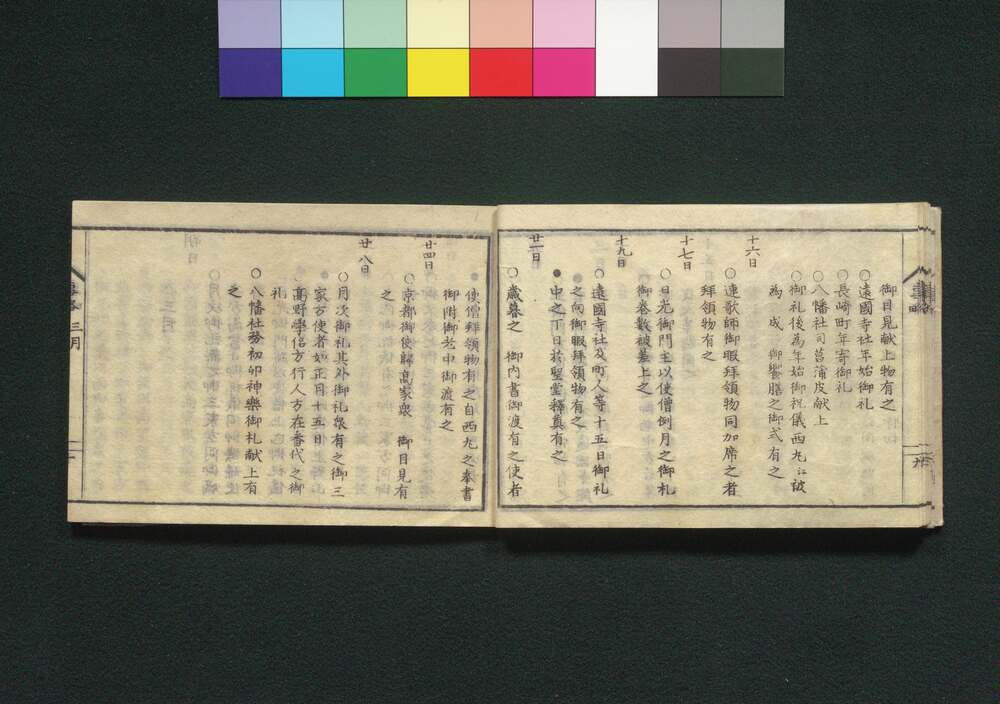 御目見献上物有之
○遠國寺社年始御礼
○長崎町年寄御礼
○八幡社司菖蒲皮献上
○御礼後為年始御祝儀西丸江被
為　成　御饗膳之御式有之
十六日
○連歌師御暇拜領物同加席之者
拜領物有之
十七日
○日光御門主以使僧例月之御札
御巻数被差上之
十九日
○遠國寺社及町人等十五日御礼
之向御暇拜領物有之
●中之丁日於聖堂釋奠有之
廿一日
○歳暮之　御内書御渡有之使者
使僧拜領物有之自西丸之奉書
御附御老中御渡有之
廿四日
○京都御使歸高家衆　御目見有
之
廿八日
○月次御礼其外御礼衆有之御三
家方使者如正月十五日
高野學侶方行人方在番代之御
礼
○八幡社務初卯神樂御札献上有
之
三月